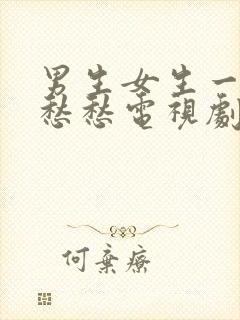 男生女生一
愁愁電視劇
何棄療